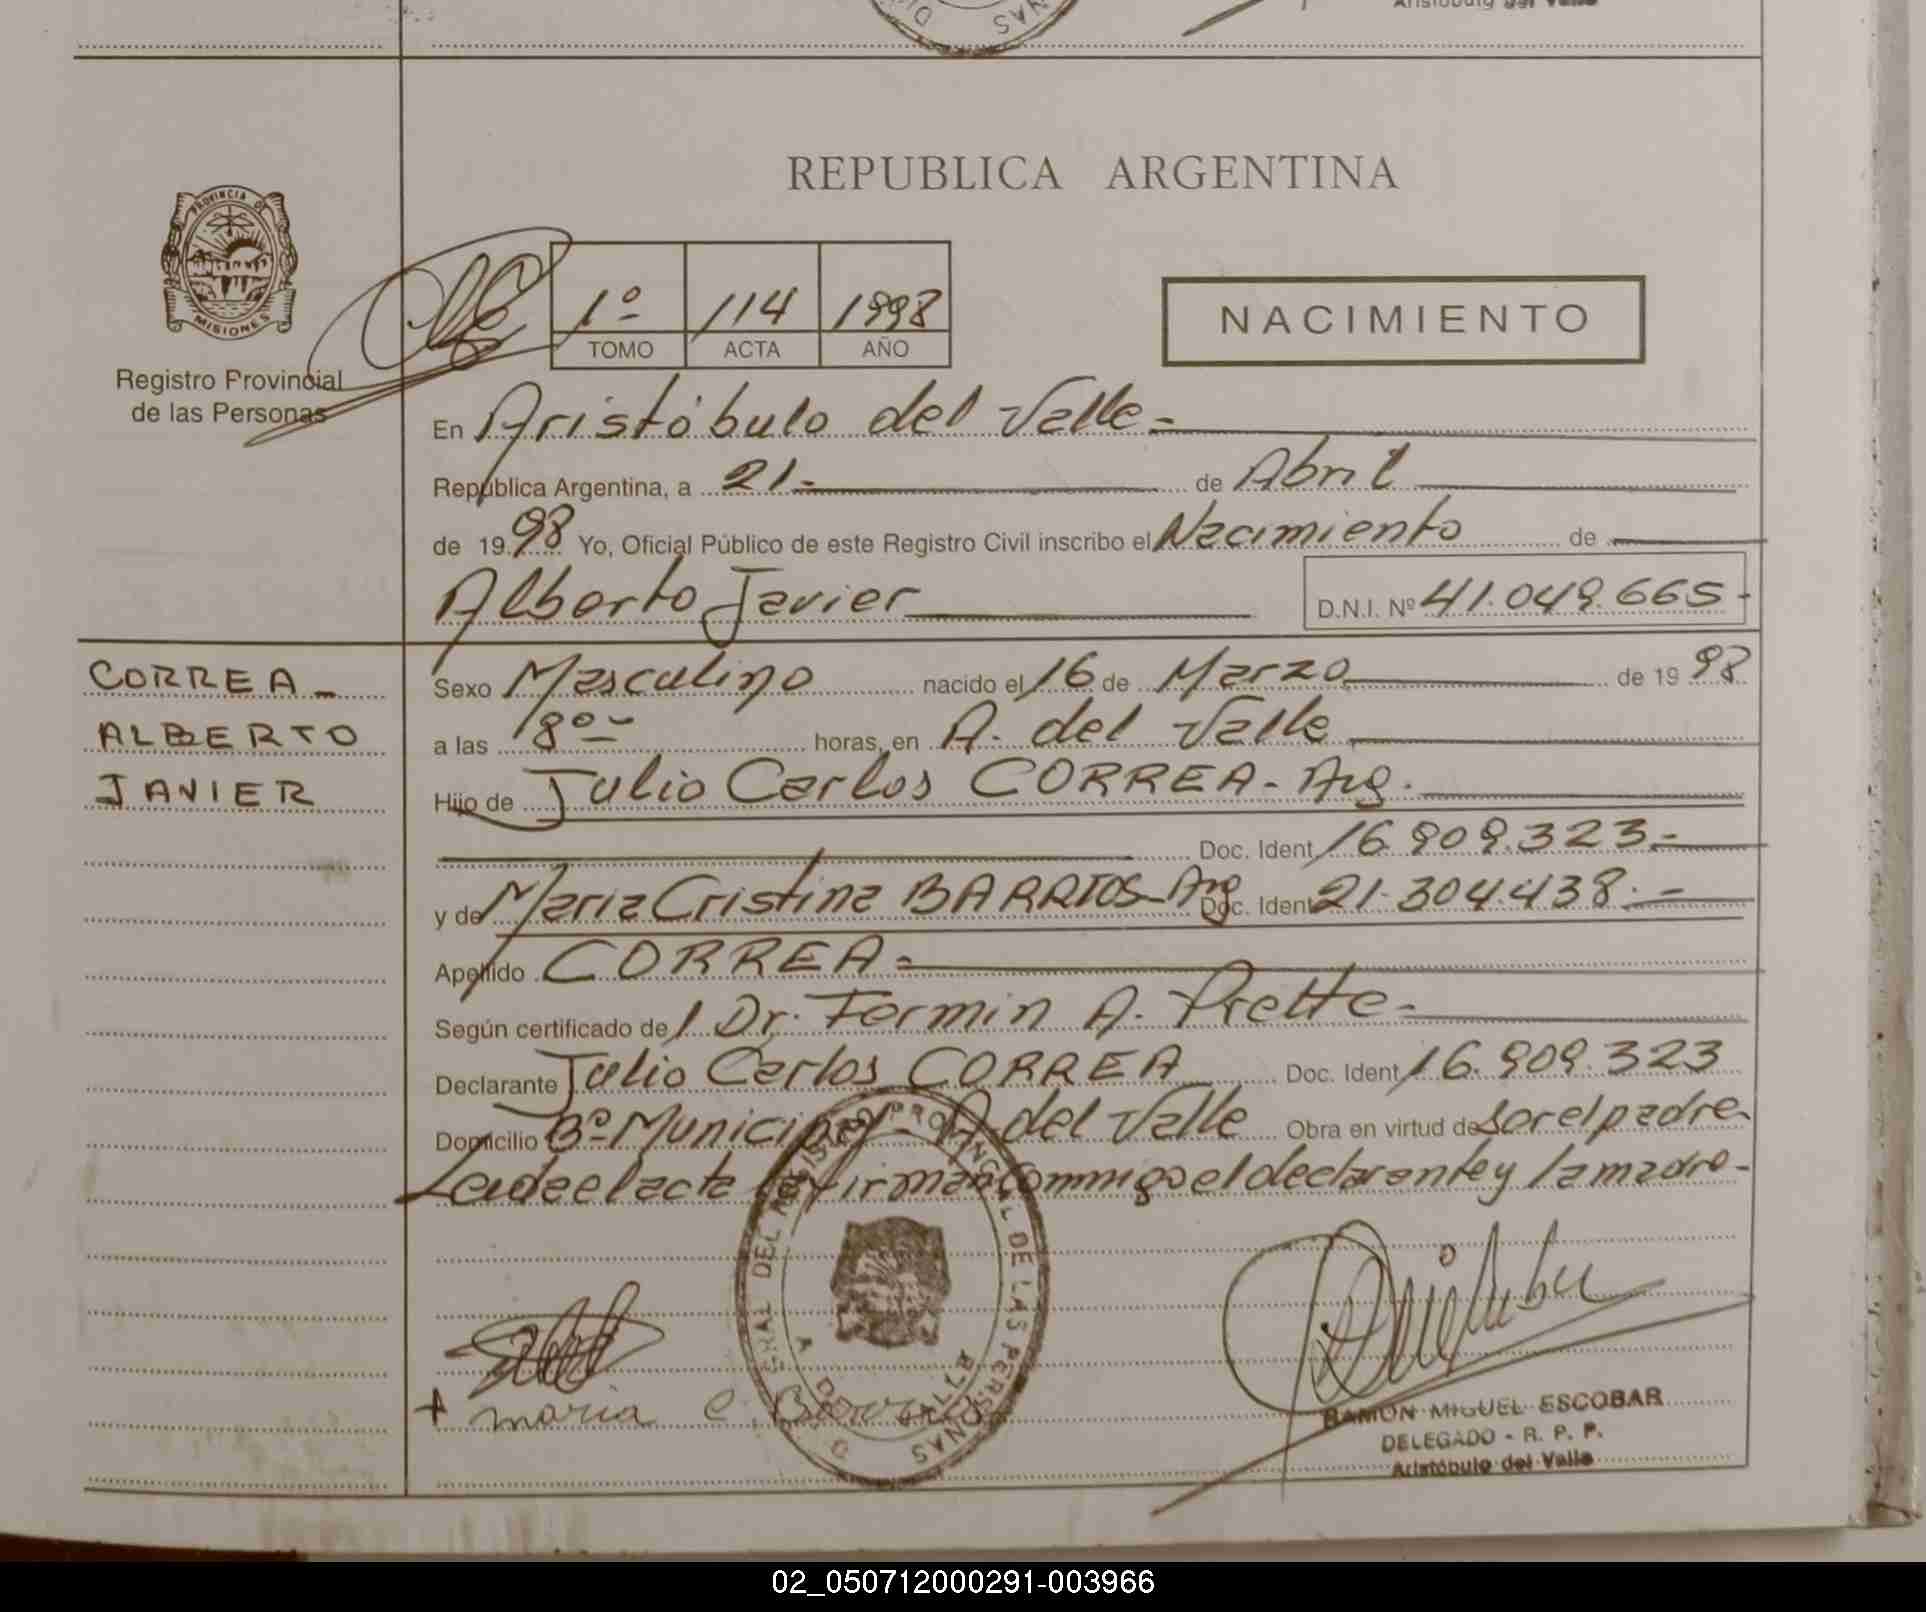 Aristóbulo del Valle
REPUBLICA ARGENTINA
PROVINCIA DE
MISIONES
Registro Provincial
de las Personas
1º 114 1998
TOMO ACTA AÑO
NACIMIENTO
En Aristóbulo del Valle-
República Argentina, a 21- de Abril
de 1998 Yo, Oficial Público de este Registro Civil inscribo el Nacimiento de
Alberto Javier D.N.I. Nº 41.049.665-
CORREA-
ALBERTO
JAVIER
Sexo Masculino nacido el 16 de Marzo de 1998
a las 18º- horas, en A. del Valle
Hijo de Julio Carlos CORREA- Arg.
Doc. Ident 16.909.323.-
y de Maria Cristina BARRIOS-Arg Doc. Ident 21.304.438.-
Apellido CORREA-
Según certificado de Dr. Fermin A. Prette-
Declarante Julio Carlos CORREA Doc. Ident 16.909.323
Domicilio Bº Municipal- A. del Valle Obra en virtud de ser el padre
Leida el acta la firman conmigo el declarante y la madre-
DEL REGISTRO PROVINCIAL DE LAS PERSONAS
+ maria C. Barrios
RAMON MIGUEL ESCOBAR
DELEGADO - R. P. P.
Aristóbulo del Valle
02_050712000291-003966